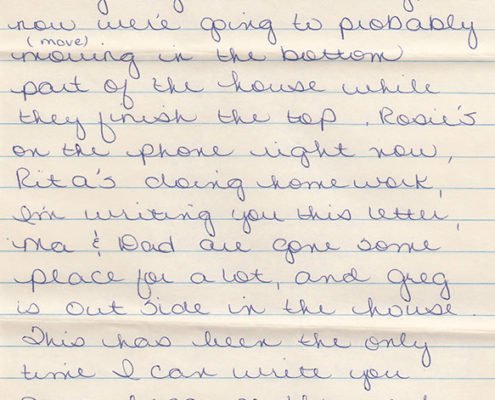 now we're going to probably
(move)
moving in the bottom
part of the house while
they finish the top. Rosie's
on the phone right now,
Rita's doing homework,
I'm writing you this letter,
Ma & Dad are gone some
place for a lot, and Greg
is out side in the house.
This has been the only
time I can write you